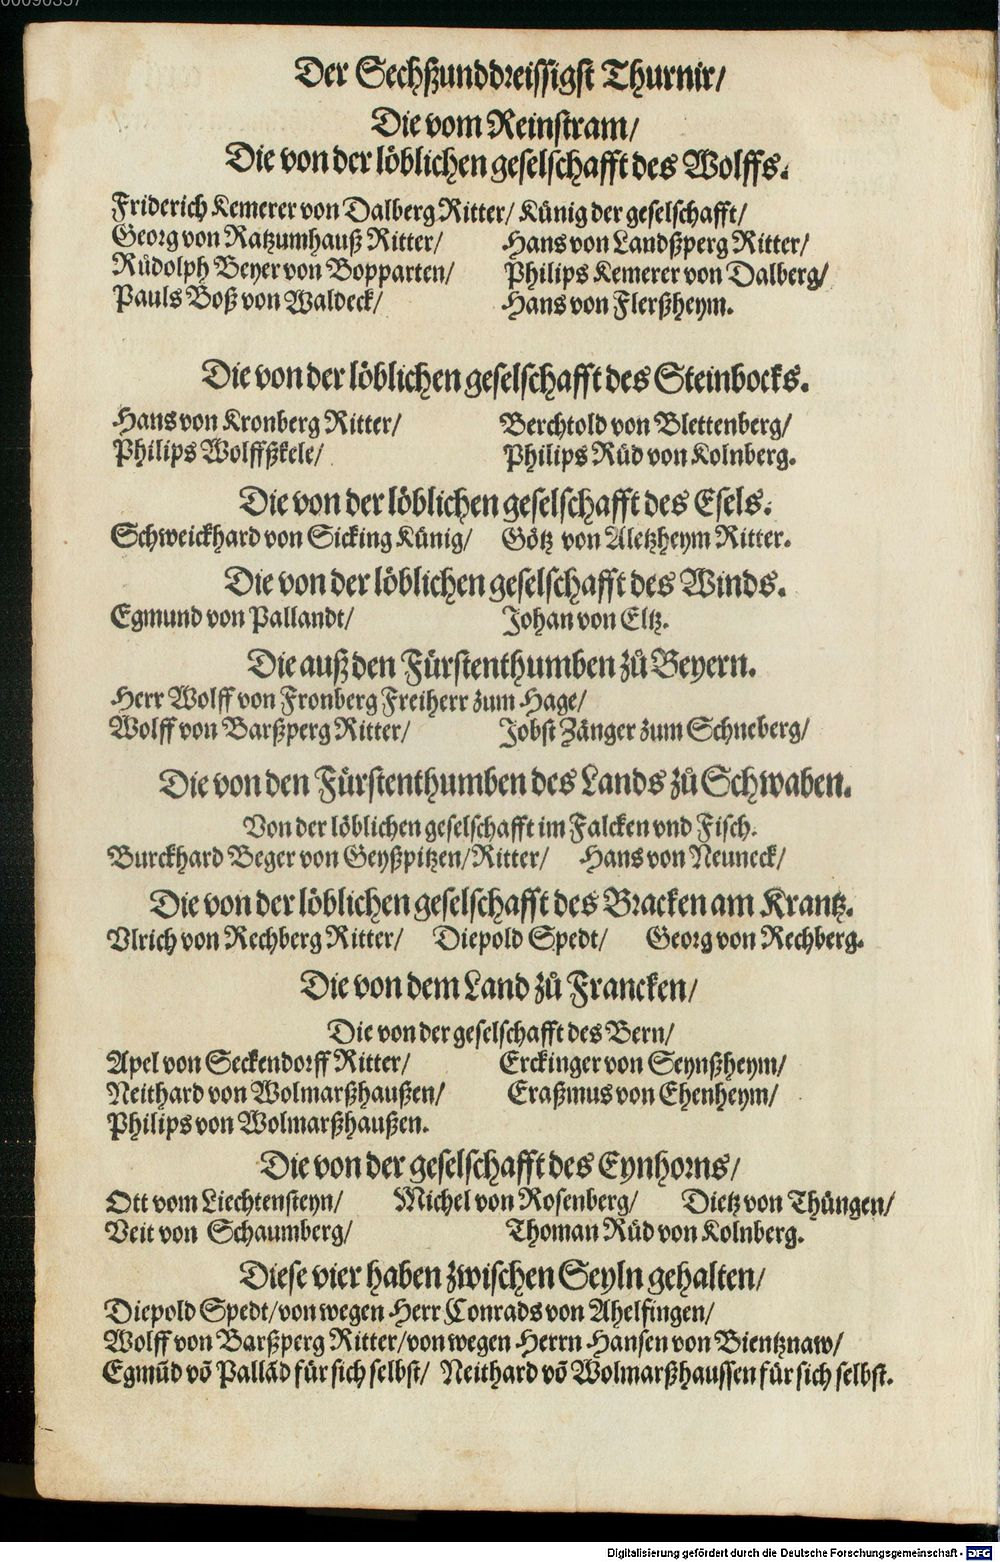 00090357
Der Sechßunddreissigst Thurnir/
Die vom Reinstram/
Die von der löblichen geselschafft des Wolffs.
Friderich Kemerer von Dalberg Ritter/ Künig der geselschafft/
Georg von Ratzumhauß Ritter/ Hans von Landßperg Ritter/
Růdolph Beyer von Bopparten/ Philips Kemerer von Dalberg/
Pauls Boß von Waldeck/ Hans von Flerßheym.
Die von der löblichen geselschafft des Steinbocks.
Hans von Kronberg Ritter/ Berchtold von Blettenberg/
Philips Wolffßkele/ Philips Rüd von Kolnberg.
Die von der löblichen geselschafft des Esels.
Schweickhard von Sicking Künig/ Götz von Aletzheym Ritter.
Die von der löblichen geselschafft des Winds.
Egmund von Pallandt/ Johan von Eltz.
Die auß den Fürstenthumben zů Beyern.
Herr Wolff von Fronberg Freiherr zum Hage/
Wolff von Barßperg Ritter/ Jobst Zänger zum Schneberg/
Die von den Fürstenthumben des Lands zů Schwaben.
Von der löblichen geselschafft im Falcken vnd Fisch.
Burckhard Beger von Geyßpitzen/ Ritter/ Hans von Neuneck/
Die von der löblichen geselschafft des Bracken am Krantz.
Vlrich von Rechberg Ritter/ Diepold Spedt/ Georg von Rechberg.
Die von dem Land zů Francken/
Die von der geselschafft des Bern/
Apel von Seckendorff Ritter/ Erckinger von Seynßheym/
Neithard von Wolmarßhaußen/ Eraßmus von Ehenheym/
Philips von Wolmarßhaußen.
Die von der geselschafft des Eynhorns/
Ott vom Liechtensteyn/ Michel von Rosenberg/ Dietz von Thüngen/
Veit von Schaumberg/ Thoman Rüd von Kolnberg.
Diese vier haben zwischen Seyln gehalten/
Diepold Spedt/ von wegen Herr Conrads von Ahelfingen/
Wolff von Barßperg Ritter/ von wegen Herrn Hansen von Bientznaw/
Egmūd võ Pallãd für sich selbst/ Neithard võ Wolmarßhaussen für sich selbst.
Digitalisierung gefördert durch die Deutsche Forschungsgemeinschaft - DFG